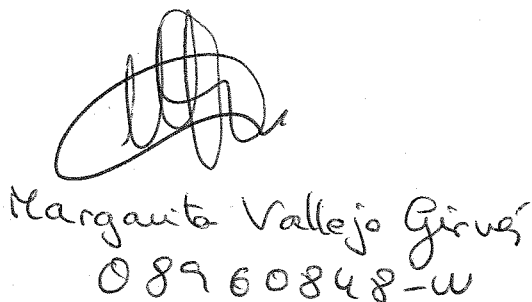 Margarita Vallejo Girvés
08960848-W